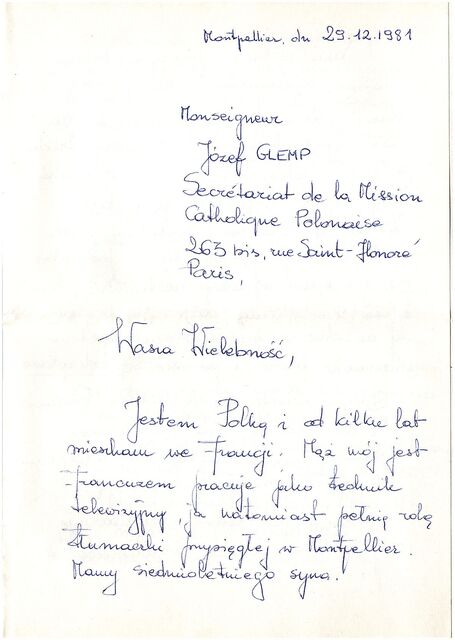 Montpellier, du 29.12.1981
Monseigneur
Józef GLEMP
Secrétariat de la Mission
Catholique Polonaise
263 bis, rue Saint-Honoré
Paris,
Wasza Wielebność,
Jestem Polką i od kilku lat
mieszkam we Francji. Mąż mój jest
Francuzem pracuje jako technik
telewizyjny, ja natomiast pełnię rolę
tłumaczki przysięgłej w Montpellier.
Mamy siedmioletniego syna.